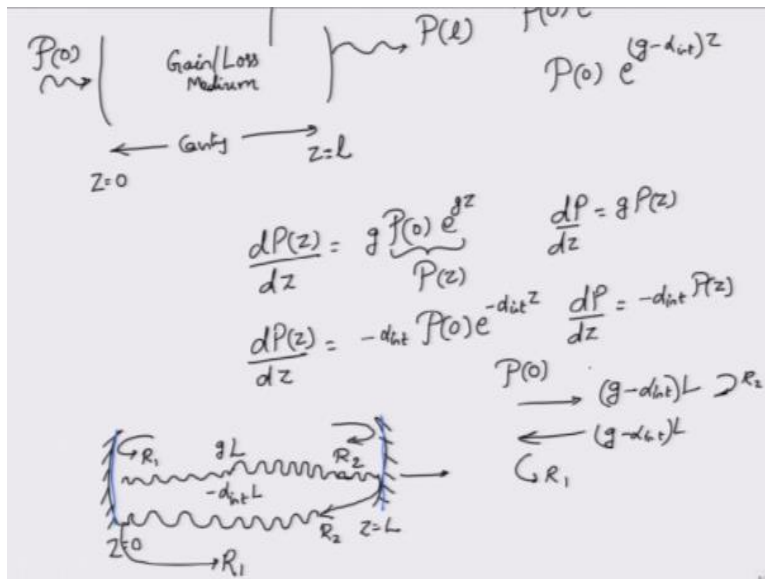 P(0) e
P(0)
Gain/Loss
Medium
P(l)
P(0) e^{(g-α_{int})z}
Cavity
z=0
z=l
dP(z)/dz = g P(0) e^{gz}
P(z)
dP/dz = g P(z)
dP(z)/dz = -α_{int} P(0) e^{-α_{int}z}
dP/dz = -α_{int} P(z)
P(0)
(g-α_{int})L R_2
(g-α_{int})L
R_1
R_1
gL
R_2
-α_{int}L
z=0
R_2
z=L
R_1